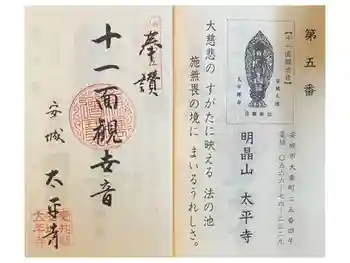 第五番
【十一面観世音】
安城市大東町二五番四号
電話 〇五六六-七六-二三二九
明晶山 太平寺
大慈悲の すがたに映える 法の池
施無畏の境に まいるうれしさ。
奉讃
十一面観世音
安城 太平寺